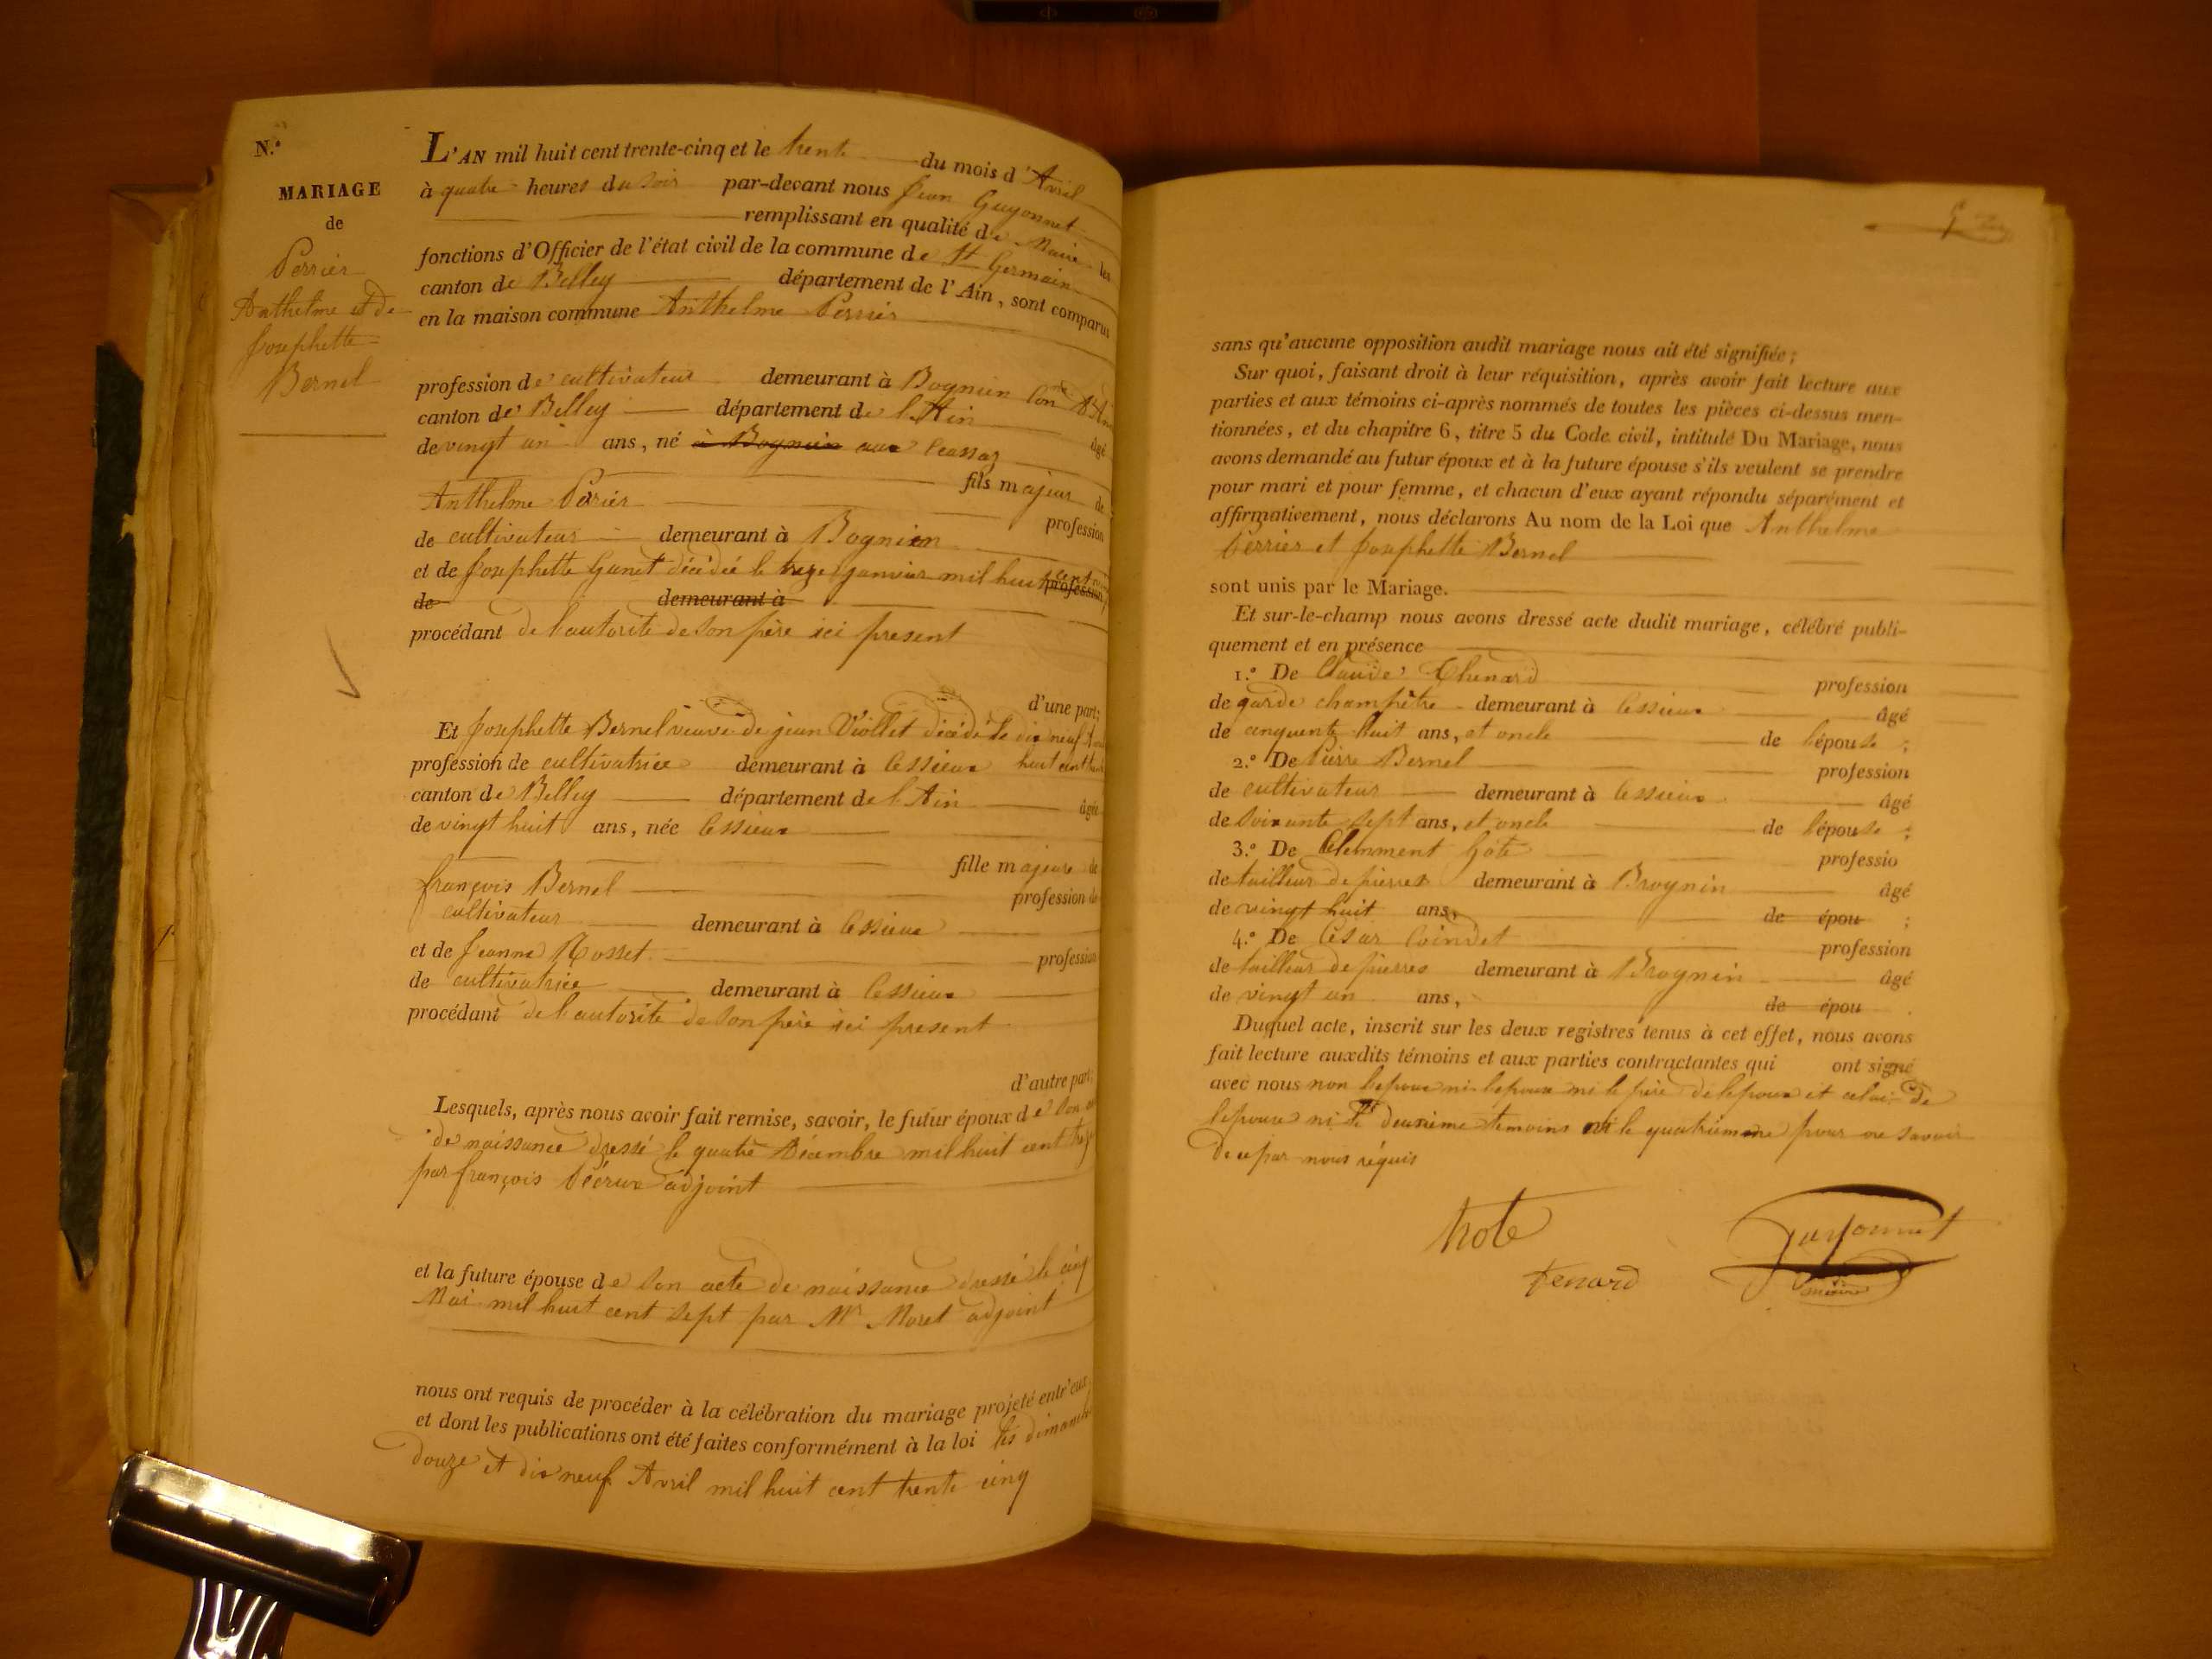 N.°
MARIAGE
de
Perrier
Anthelme et de
Josephette
Bernel
L'AN mil huit cent trente-cinq et le trente du mois d'Avril
à quatre heures du soir par-devant nous Jean Guyonnet
remplissant en qualité de Maire les
fonctions d'Officier de l'état civil de la commune de St Germain
canton de Belley département de l'Ain, sont comparus
en la maison commune Anthelme Perrier
profession de cultivateur demeurant à Bognin
canton de Belley département de l'Ain
âgé
de vingt un ans, né à Bognin aux
fils majeur de
Anthelme Perier
profession
de cultivateur demeurant à Bognien
et de Josephette Ganet décédée le treize janvier mil huit cent
profession
de demeurant à
procédant de l'autorité de son père ici present
d'une part;
Et Josephette Bernel veuve de jean Viollet décédé le dix neuf
profession de cultivatrice demeurant à Cessieux huit cent
canton de Belley département de l'Ain âgée
de vingt huit ans, née Cessieux
fille majeure de
françois Bernel profession de
cultivateur demeurant à Cessieux
et de Jeanne Rosset profession
de cultivatrice demeurant à Cessieux
procédant de l'autorité de son père ici present
d'autre part;
Lesquels, après nous avoir fait remise, savoir, le futur époux de son
de naissance dressé le quatre Décembre mil huit cent treize
par françois adjoint
et la future épouse de son acte de naissance dressé le cinq
Mai mil huit cent sept par Mr Moret adjoint
nous ont requis de procéder à la célébration du mariage projeté entr'eux
et dont les publications ont été faites conformément à la loi les dimanches
douze et dix neuf Avril mil huit cent trente cinq
sans qu'aucune opposition audit mariage nous ait été signifiée;
Sur quoi, faisant droit à leur réquisition, après avoir fait lecture aux
parties et aux témoins ci-après nommés de toutes les pièces ci-dessus men-
tionnées, et du chapitre 6, titre 5 du Code civil, intitulé Du Mariage, nous
avons demandé au futur époux et à la future épouse s'ils veulent se prendre
pour mari et pour femme, et chacun d'eux ayant répondu séparément et
affirmativement, nous déclarons Au nom de la Loi que Anthelme
Perrier et Josephette Bernel
sont unis par le Mariage.
Et sur-le-champ nous avons dressé acte dudit mariage, célébré publi-
quement et en présence
1.° De Claude Thenard profession
de garde champêtre demeurant à Cessieux âgé
de cinquente huit ans, et oncle de l'épouse ;
2.° De Pierre Bernel profession
de cultivateur demeurant à Cessieux âgé
de soixante sept ans, et oncle de l'épouse ;
3.° De Clemment profession
de tailleur de pierres demeurant à Brognin âgé
de vingt huit ans, de épou ;
4.° De César Coindet profession
de tailleur de pierres demeurant à Brognin âgé
de vingt un ans, de épou .
Duquel acte, inscrit sur les deux registres tenus à cet effet, nous avons
fait lecture auxdits témoins et aux parties contractantes qui ont signé
avec nous non l'epoux ni l'epouse ni le père de l'epoux et celui de
l'epouse ni le deuxieme temoins ni le quatriemme pour ne savoir
de ce par nous réquis
tenard
Guyonnet
maire